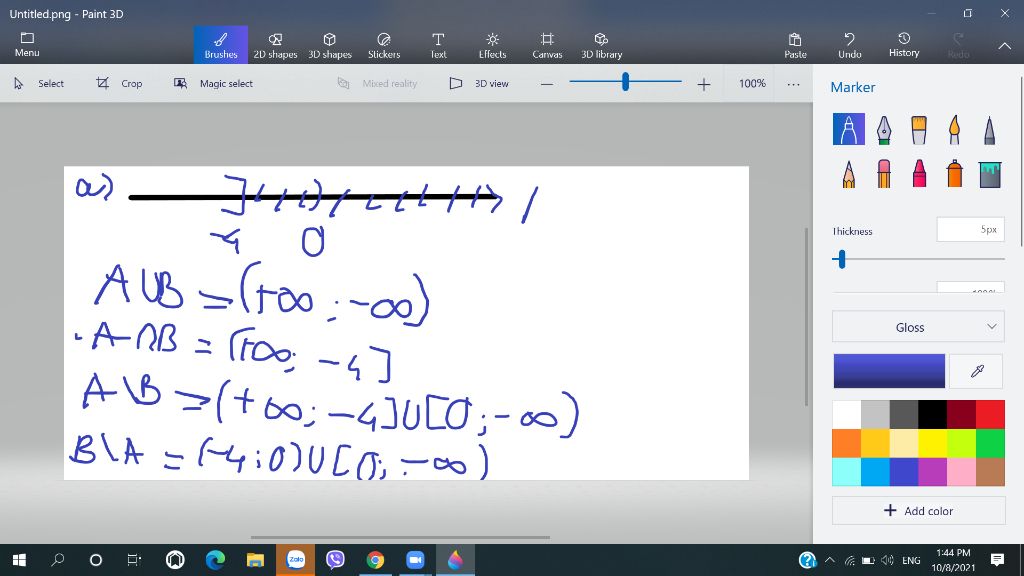 Untitled.png - Paint 3D
Menu
Brushes
2D shapes
3D shapes
Stickers
Text
Effects
Canvas
3D library
Paste
Undo
History
Redo
Select
Crop
Magic select
Mixed reality
3D view
100%
Marker
Thickness
5px
Gloss
Add color
a)
-4 0
A∪B = (+∞ ; -∞)
A∩B = [+∞; -4]
A\B = (+∞; -4]∪[0; -∞)
B\A = (-4; 0)∪[0; -∞)
Zalo
ENG
1:44 PM
10/8/2021